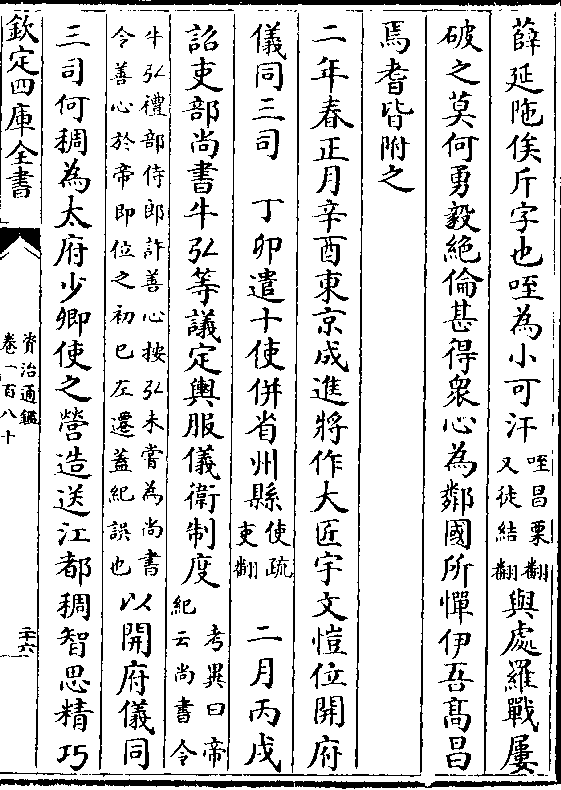 薛延陁俟斤字也咥為小可汗咥昌栗翻又徒結翻與處羅戰屢
破之莫何勇毅絶倫甚得衆心為鄰國所憚伊吾髙昌
焉耆皆附之
二年春正月辛酉東京成進將作大匠宇文愷位開府
儀同三司　丁卯遣十使併省州縣使疏吏翻　二月丙戌
詔吏部尚書牛弘等議定輿服儀衛制度考異曰帝紀云尚書令
牛弘禮部侍郎許善心按弘未嘗為尚書令善心於帝即位之初已左遷蓋紀誤也以開府儀同
三司何稠為太府少卿使之營造送江都稠智思精巧
欽定四庫全書
資治通鑑
卷一百八十
二十六